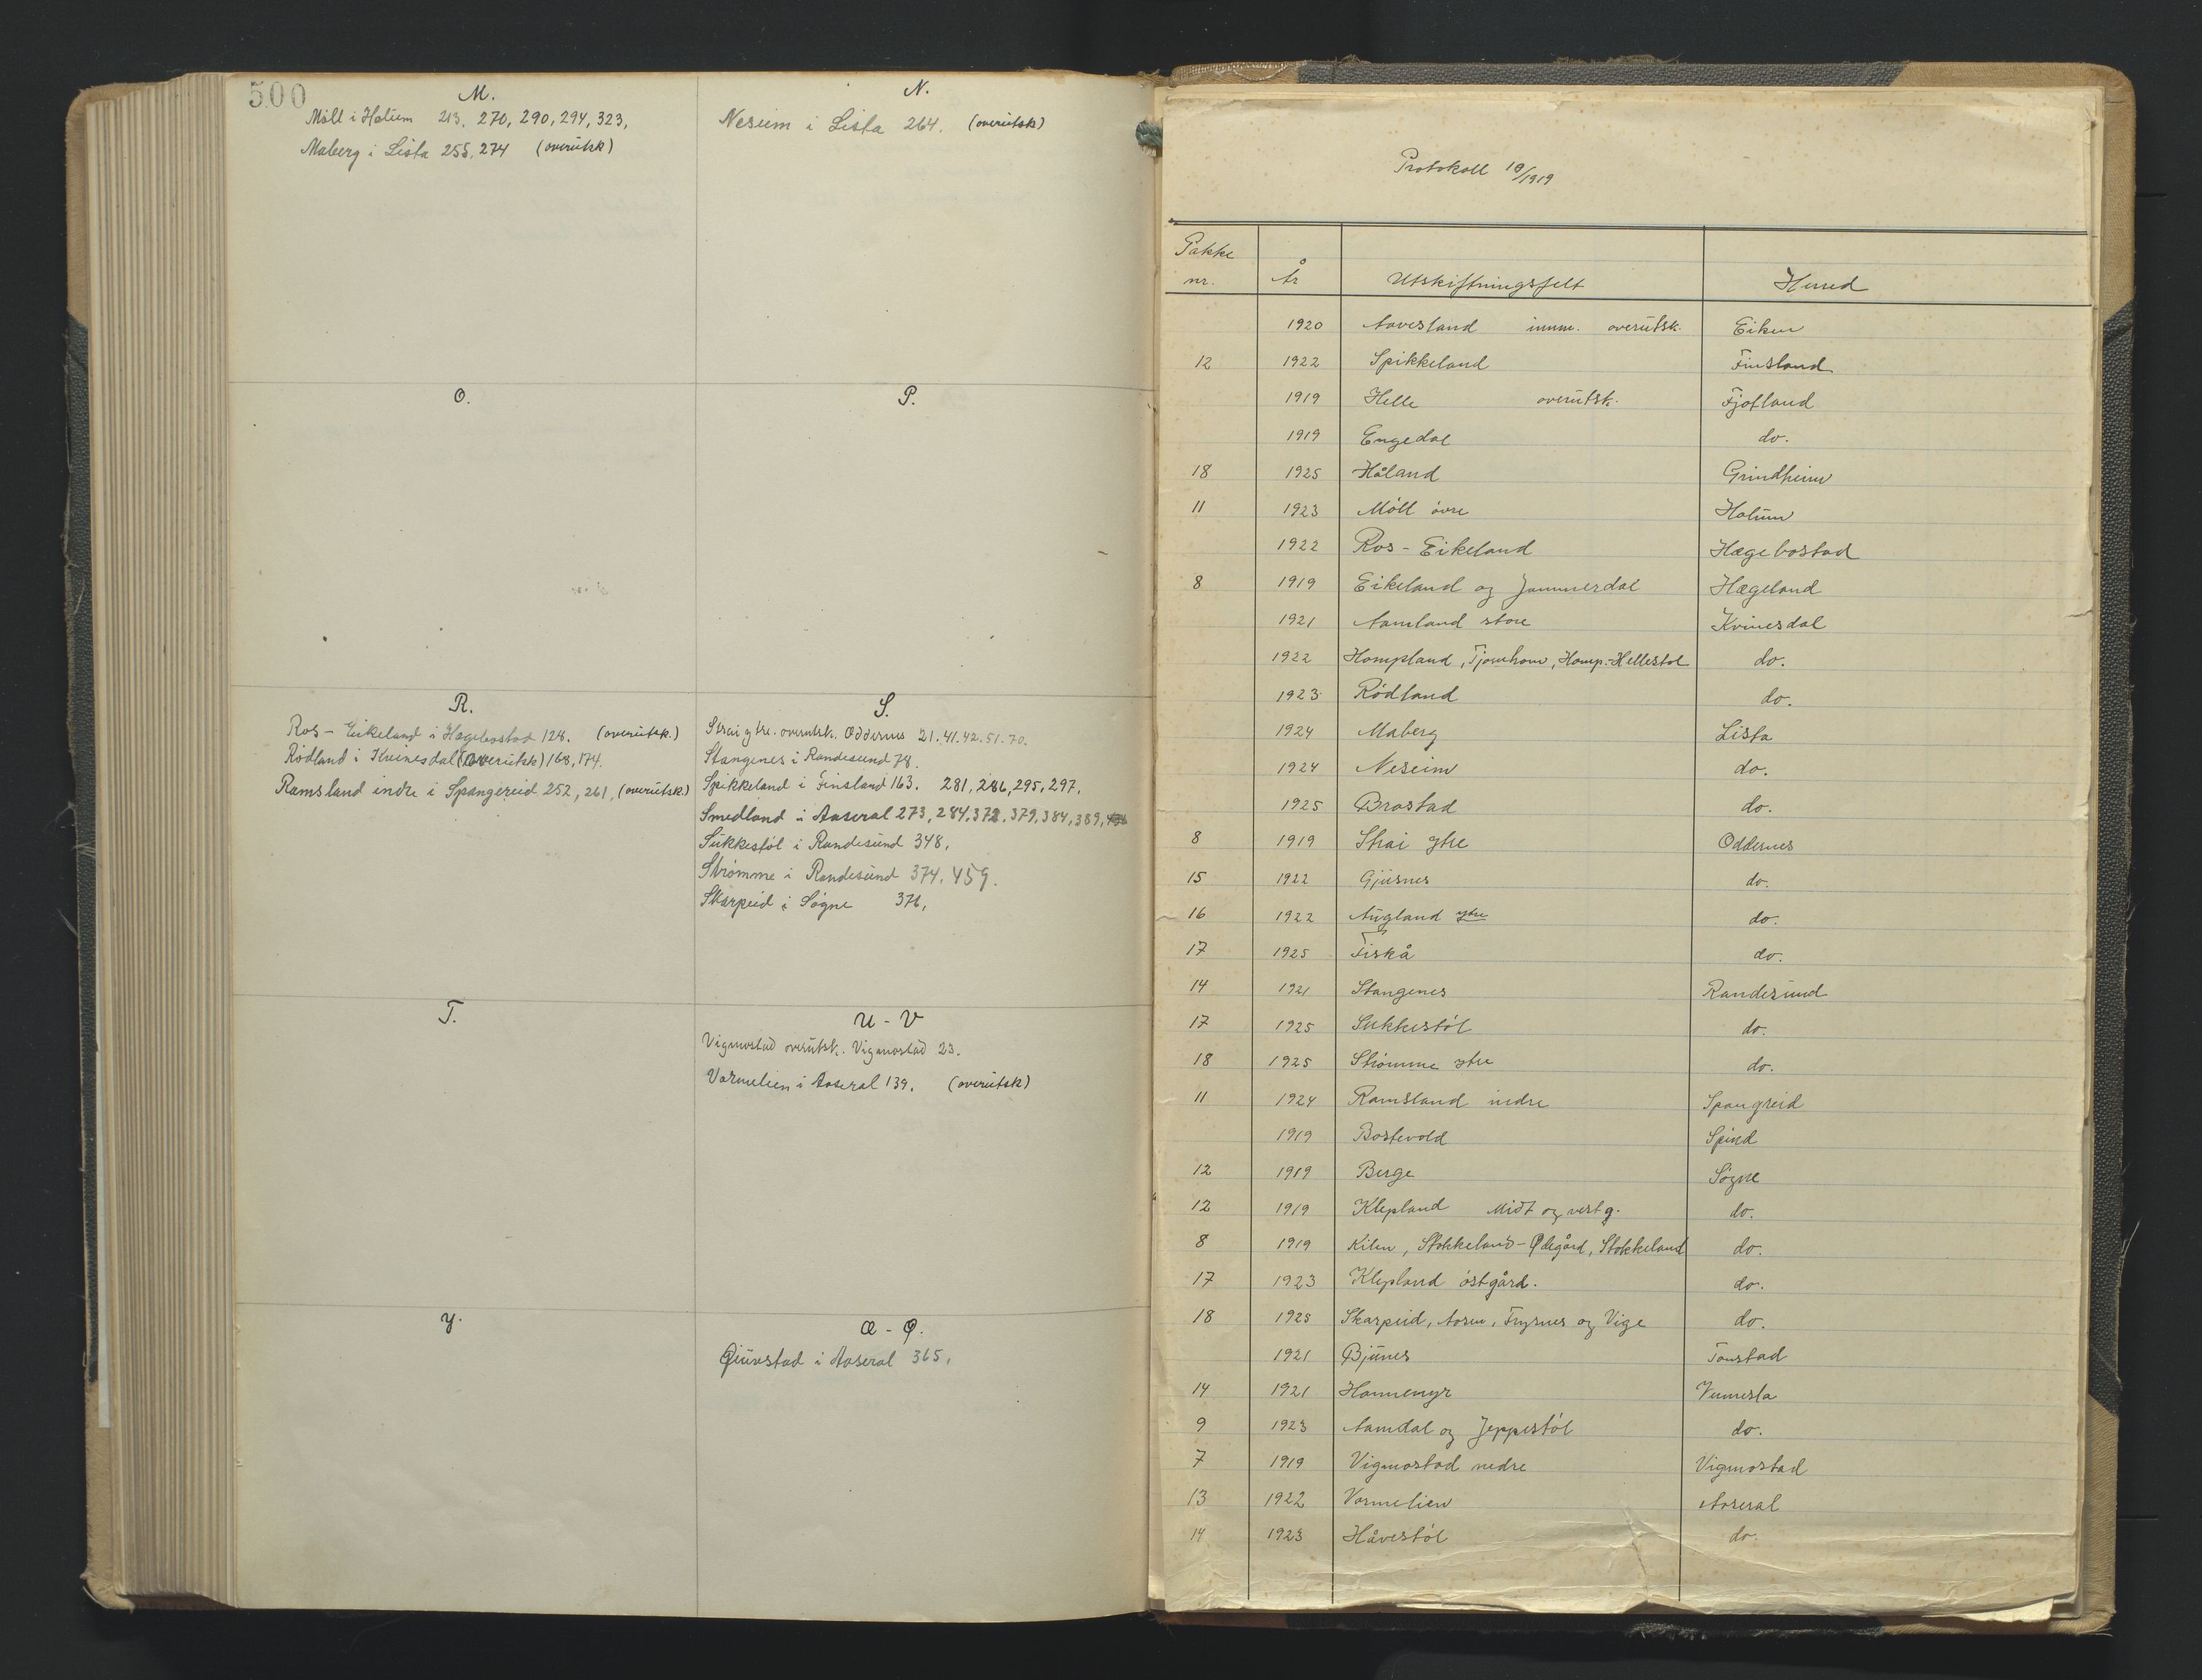 500
M.
Møll i Holum 213, 270, 290, 294, 323,
Maberg i Lista 255, 274 (overutsk)
N.
Neseim i Lista 264. (overutsk)
O.
P.
R.
Ros - Eikeland i Hægebostad 128. (overutsk.)
Rødland i Kvinesdal (overutsk) 168, 174.
Ramsland indre i Spangereid 252, 261, (overutsk.)
S.
Strai ytre. overutsk. Oddernes 21. 41. 42. 51. 70.
Stangenes i Randesund 78.
Spikkeland i Finsland 163. 281, 286, 295, 297.
Smedland i Aaseral 273, 284, 372, 379, 384, 389,
Sukkestøl i Randesund 348,
Strømme i Randesund 374, 459.
Skarpeid i Søgne 376,
T.
U - V
Vigmostad overutsk. Vigmostad 23.
Vormelien i Aaseral 139. (overutsk)
Y.
Æ - Ø.
Øiuvstad i Aaseral 365,
Protokoll 10/1919
Pakke nr. År Utskiftningsfelt Herred
1920 Aavesland innm. overutsk. Eiken
12 1922 Spikkeland Finsland
1919 Helle overutsk. Fjotland
1919 Engedal do.
18 1925 Håland Grindheim
11 1923 Møll øvre Holum
1922 Ros - Eikeland Hægebostad
8 1919 Eikeland og Jammerdal Hægeland
1921 Aamland store Kvinesdal
1922 Hompland, Tjomhom, Homp.-Hellestøl do.
1923 Rødland do.
1924 Maberg Lista
1924 Neseim do.
1925 Brastad do.
8 1919 Strai ytre Oddernes
15 1922 Gjusnes do.
16 1922 Augland ytre do.
17 1925 Fiskå do.
14 1921 Stangenes Randesund
17 1925 Sukkestøl do.
18 1925 Strømme ytre do.
11 1924 Ramsland indre Spangreid
1919 Bostevold Spind
12 1919 Berge Søgne
12 1919 Klepland Midt og vestg. do.
8 1919 Kilen, Stokkeland-Ødegård, Stokkeland do.
17 1923 Klepland østgård. do.
18 1925 Skarpeid, Aosen, Frysnes og Vige do.
1921 Bjunes Tonstad
14 1921 Hommenyr Vennesla
9 1923 Aamdal og Jeppestøl do.
7 1919 Vigmostad nedre Vigmostad
13 1922 Vormelien Aaseral
14 1923 Håvestøl do.